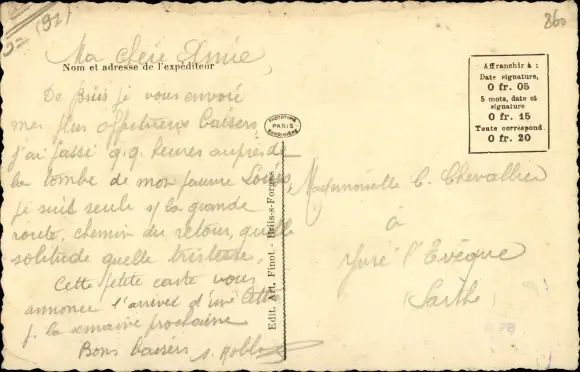 (91)
860
Ma chère Amie,
Nom et adresse de l'expéditeur
De Briis je vous envoie
mes plus affectueux baisers
j'ai passé q.q. heures auprès de
la tombe de mon pauvre Louis
je suis seule s/ la grande
route, chemin du retour, quelle
solitude quelle tristesse,
Cette petite carte vous
annonce l'arrivée d'une lettre
p. la semaine prochaine
Bons baisers
PARIS
Edit. Art. Finot - Briis-s-Forges
Affranchir à :
Date signature,
0 fr. 05
5 mots, date et
signature
0 fr. 15
Toute correspond.
0 fr. 20
Mademoiselle C. Chevallier
à
Yvré l'Evêque
(Sarthe)
PB